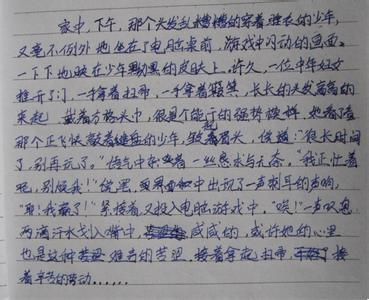 家中，下午，那个头发乱糟糟的穿着睡衣的少年，
又毫不例外地坐在了电脑桌前，游戏中闪动的画面。
一下下地映在少年黝黑的皮肤上。许久，一位中年妇女
推开了门，一手拿着扫帚，一手拿着簸箕，长长的头发高高的
束起 戴着方格头巾，很是个能干的强势模样，她看了看
那个正飞快敲着键盘的少年，皱起眉头，说道："很长时间
了，别再玩了。"语气中带着一丝恳求与无奈。"我正忙着
呢，别烦我！"说罢，中出现了一声刺耳的声响，
"耶！我赢了！"紧接着又投入电脑游戏中，"唉！"一声叹息
两滴汗水划入嘴中，咸咸的，或许她的心里
也是这种难奇的苦涩，接着拿起扫帚，接
着辛苦的劳动……